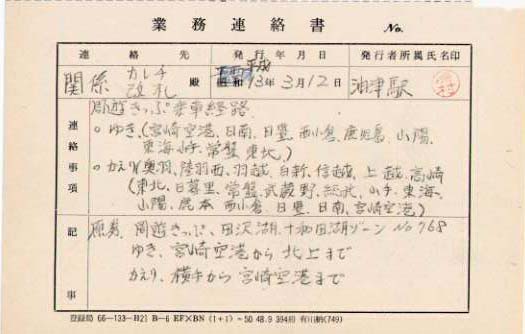 業務連絡書 No.
連絡先 発行年月日 発行者所属氏名印
関係 カレチ 改札 殿 平成 昭和 13年3月12日 油津駅
連絡事項
周遊きっぷ乗車経路
○ ゆき、(宮崎空港、日南、日豊、西小倉、鹿児島、山陽、
東海、山手、常磐、東北)
○ かえり(奥羽、陸羽西、羽越、白新、信越、上越、高崎
(東北)、日暮里、常磐、武蔵野、総武、山手、東海、
山陽、鹿本、西小倉、日豊、日南、宮崎空港)
記事
原券、周遊きっぷ、田沢湖、十和田湖ゾーン No 768
ゆき、宮崎空港から北上まで
かえり、横手から宮崎空港まで
登録局 66-133-B21 B-6 EF×BN (1+1) ~50 48.9 394